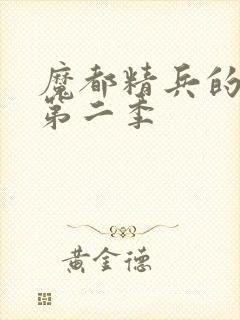 魔都精兵的
第二季
黄金德